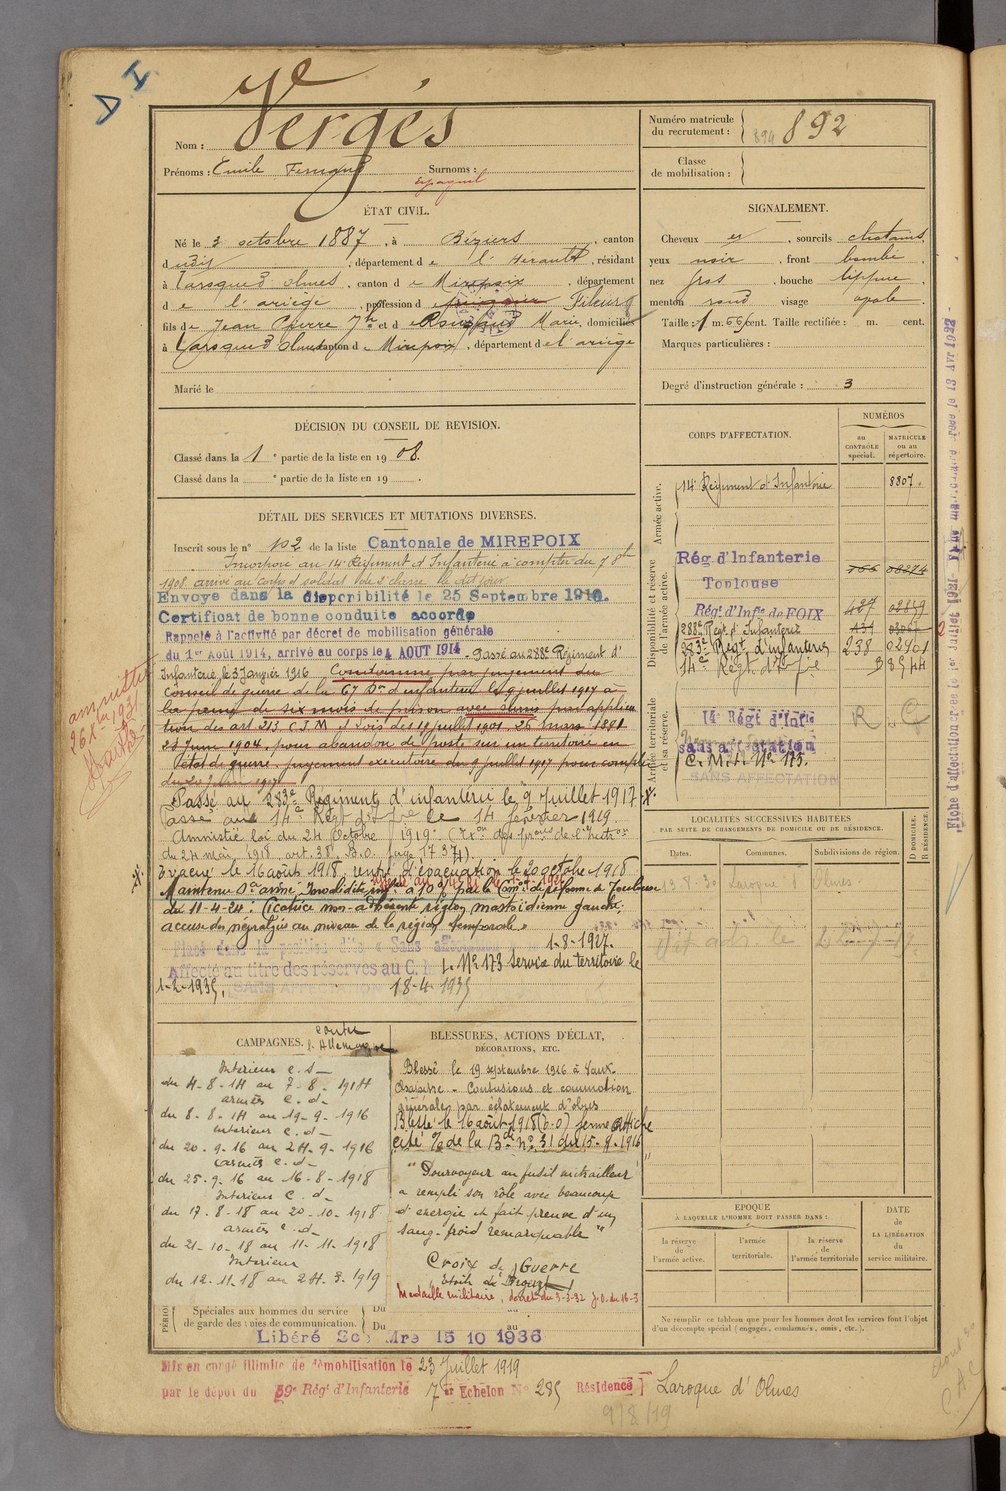 D I
Vergés
Nom :
Prénoms : Emile Fernand Surnoms :
Espagnol
Numéro matricule
du recrutement : 894 892
Classe
de mobilisation :
ÉTAT CIVIL.
Né le 3 octobre 1887, à Béziers, canton
dudit, département de l'Herault, résidant
à Laroque d'Olmes, canton de Mirepoix, département
de l'ariège, profession de Fileur
fils de Jean Pierre Jh et de Marie, domiciliés
à Laroque d'Olmes canton de Mirepoix, département de l'ariège
Marié le
SIGNALEMENT.
Cheveux et, sourcils chatains
yeux noir, front bombé
nez gros, bouche lippue
menton rond visage ovale
Taille : 1 m. 66 cent. Taille rectifiée : m. cent.
Marques particulières :
Degré d'instruction générale : 3
DÉCISION DU CONSEIL DE REVISION.
Classé dans la 1e partie de la liste en 1908.
Classé dans la e partie de la liste en 19 .
DÉTAIL DES SERVICES ET MUTATIONS DIVERSES.
Inscrit sous le n° 102 de la liste Cantonale de MIREPOIX
Incorporé au 14e Régiment d'Infanterie à compter du 7 8bre
1908. arrivé au corps et soldat de 2e classe le dit jour.
Envoyé dans la disponibilité le 25 Septembre 1910.
Certificat de bonne conduite accordé
Rappelé à l'activité par décret de mobilisation générale
du 1er Août 1914, arrivé au corps le 4 AOUT 1914. Passé au 288e Régiment d'
Infanterie, le 3 Janvier 1916. Condamné par jugement du
Conseil de guerre de la 67 Don d'infanterie le 9 juillet 1917 à
la peine de six mois de prison avec sursis par applica
tion des art 213 C.J.M et lois des 19 juillet 1901 - 26 mars 1891
28 Juin 1904, pour abandon de poste sur un territoire en
état de guerre. jugement exécutoire du 9 juillet 1917 pour compter
Passé au 283e Régiment d'infanterie le 9 Juillet 1917
Passé au 14e Régt d'Infie le 14 février 1919.
Amnistié loi du 24 Octobre 1919.
du 24 mai 1918, art. 38, B.O. page 1737.
Evacué le 16 août 1918, rentré d'évacuation le 20 octobre 1918
Maintenu Sce armé, Invalidité infre à 10 % par la Comon de réforme de Toulouse
du 11-4-24 : Cicatrice non-adhérente région mastoïdienne gauche,
accuse des névralgies au niveau de la région temporale.
Placé dans la position dite « Sans affectation » 1-8-1927.
Affecté au titre des réserves au C.M. Nº 173 service du territoire le
1-2-1935. SANS AFFECTATION 18-4-1935
amnistié
26 Xbre 1931
CORPS D'AFFECTATION.
NUMÉROS
au
CONTRÔLE
spécial.
MATRICULE
ou au
répertoire.
Armée active.
14e Régiment d'Infanterie 8807.
Disponibilité et réserve
de l'armée active.
Rég. d'Infanterie
Toulouse
Régt d'Infie de FOIX 487 02849
288e Régt d'Infanterie
283e Régt d'infanterie 238 02901
14e Régt d'Infie 38544
Armée territoriale
et sa réserve.
14e Régt d'Infie R. C
sans affectation
C.M.I. Nº 173.
SANS AFFECTATION
LOCALITÉS SUCCESSIVES HABITÉES
PAR SUITE DE CHANGEMENTS DE DOMICILE OU DE RÉSIDENCE.
D DOMICILE.
R RÉSIDENCE.
Dates.
Communes.
Subdivisions de région.
13-8-30 Laroque d'Olmes
CAMPAGNES. Contre
l'Allemagne
Intérieur c.s-
du 4-8-14 au 7-8-1914
armées c.d-
du 8-8-14 au 19-9-1916
Intérieur c.d-
du 20-9-16 au 24-9-1916
armées c.d-
du 25-9-16 au 16-8-1918
Intérieur c.d-
du 17-8-18 au 20-10-1918
armées c.d-
du 21-10-18 au 11-11-1918
Intérieur
du 12.11.18 au 24.3.1919
BLESSURES, ACTIONS D'ÉCLAT,
DÉCORATIONS, ETC.
Blessé le 19 septembre 1916 à Vaux-
Chapitre - Contusions et commotion
générale par éclatement d'obus
Blessé le 16 août 1918 (b.o)
cité % de la Bde Nº 31 du 15-9-1916
"Pourvoyeur au fusil mitrailleur
a rempli son rôle avec beaucoup
d'énergie et fait preuve d'un
sang-froid remarquable"
Croix de Guerre
Etoile de Bronze
Médaille militaire, décret du 3-3-32 J.O. du 16-3
Spéciales aux hommes du service
de garde des voies de communication.
Du
Du au
EPOQUE
À LAQUELLE L'HOMME DOIT PASSER DANS :
la réserve
de
l'armée active.
l'armée
territoriale.
la réserve
de
l'armée territoriale
DATE
de
LA LIBÉRATION
du
service militaire.
Ne remplir ce tableau que pour les hommes dont les services font l'objet
d'un décompte spécial (engagés, condamnés, omis, etc.).
Libéré Sce Mre 15 10 1936
Mis en congé illimité de démobilisation le 23 Juillet 1919
par le dépôt du 59e Régt d'Infanterie 7er Echelon Nº 285 Résidence Laroque d'Olmes
9/8/19